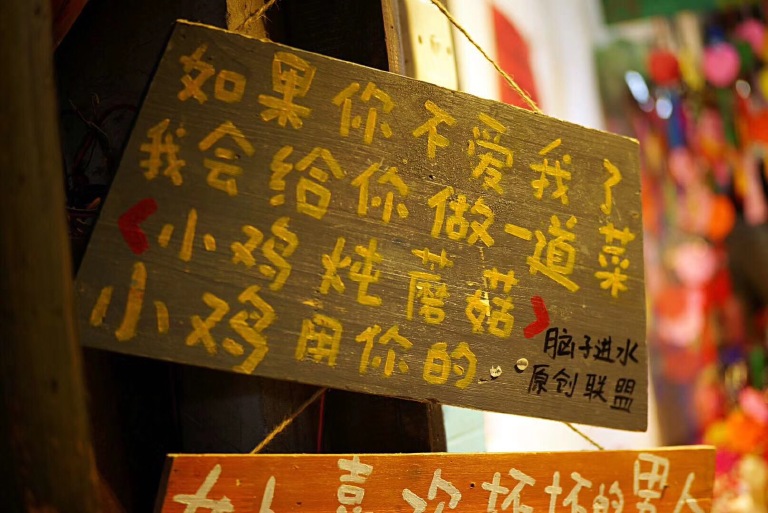 如果你不爱我了
我会给你做一道菜
《小鸡炖蘑菇》
小鸡用你的..
脑子进水
原创联盟
女人喜欢坏坏的男人